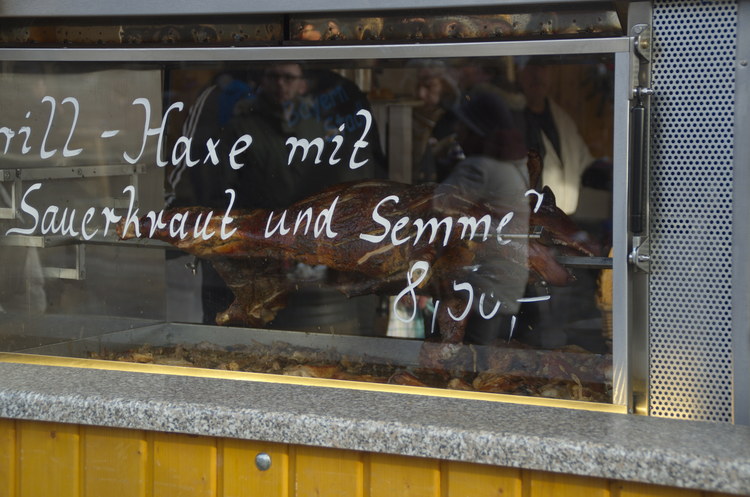 rill-Haxe mit
Sauerkraut und Semme"
8,50,-